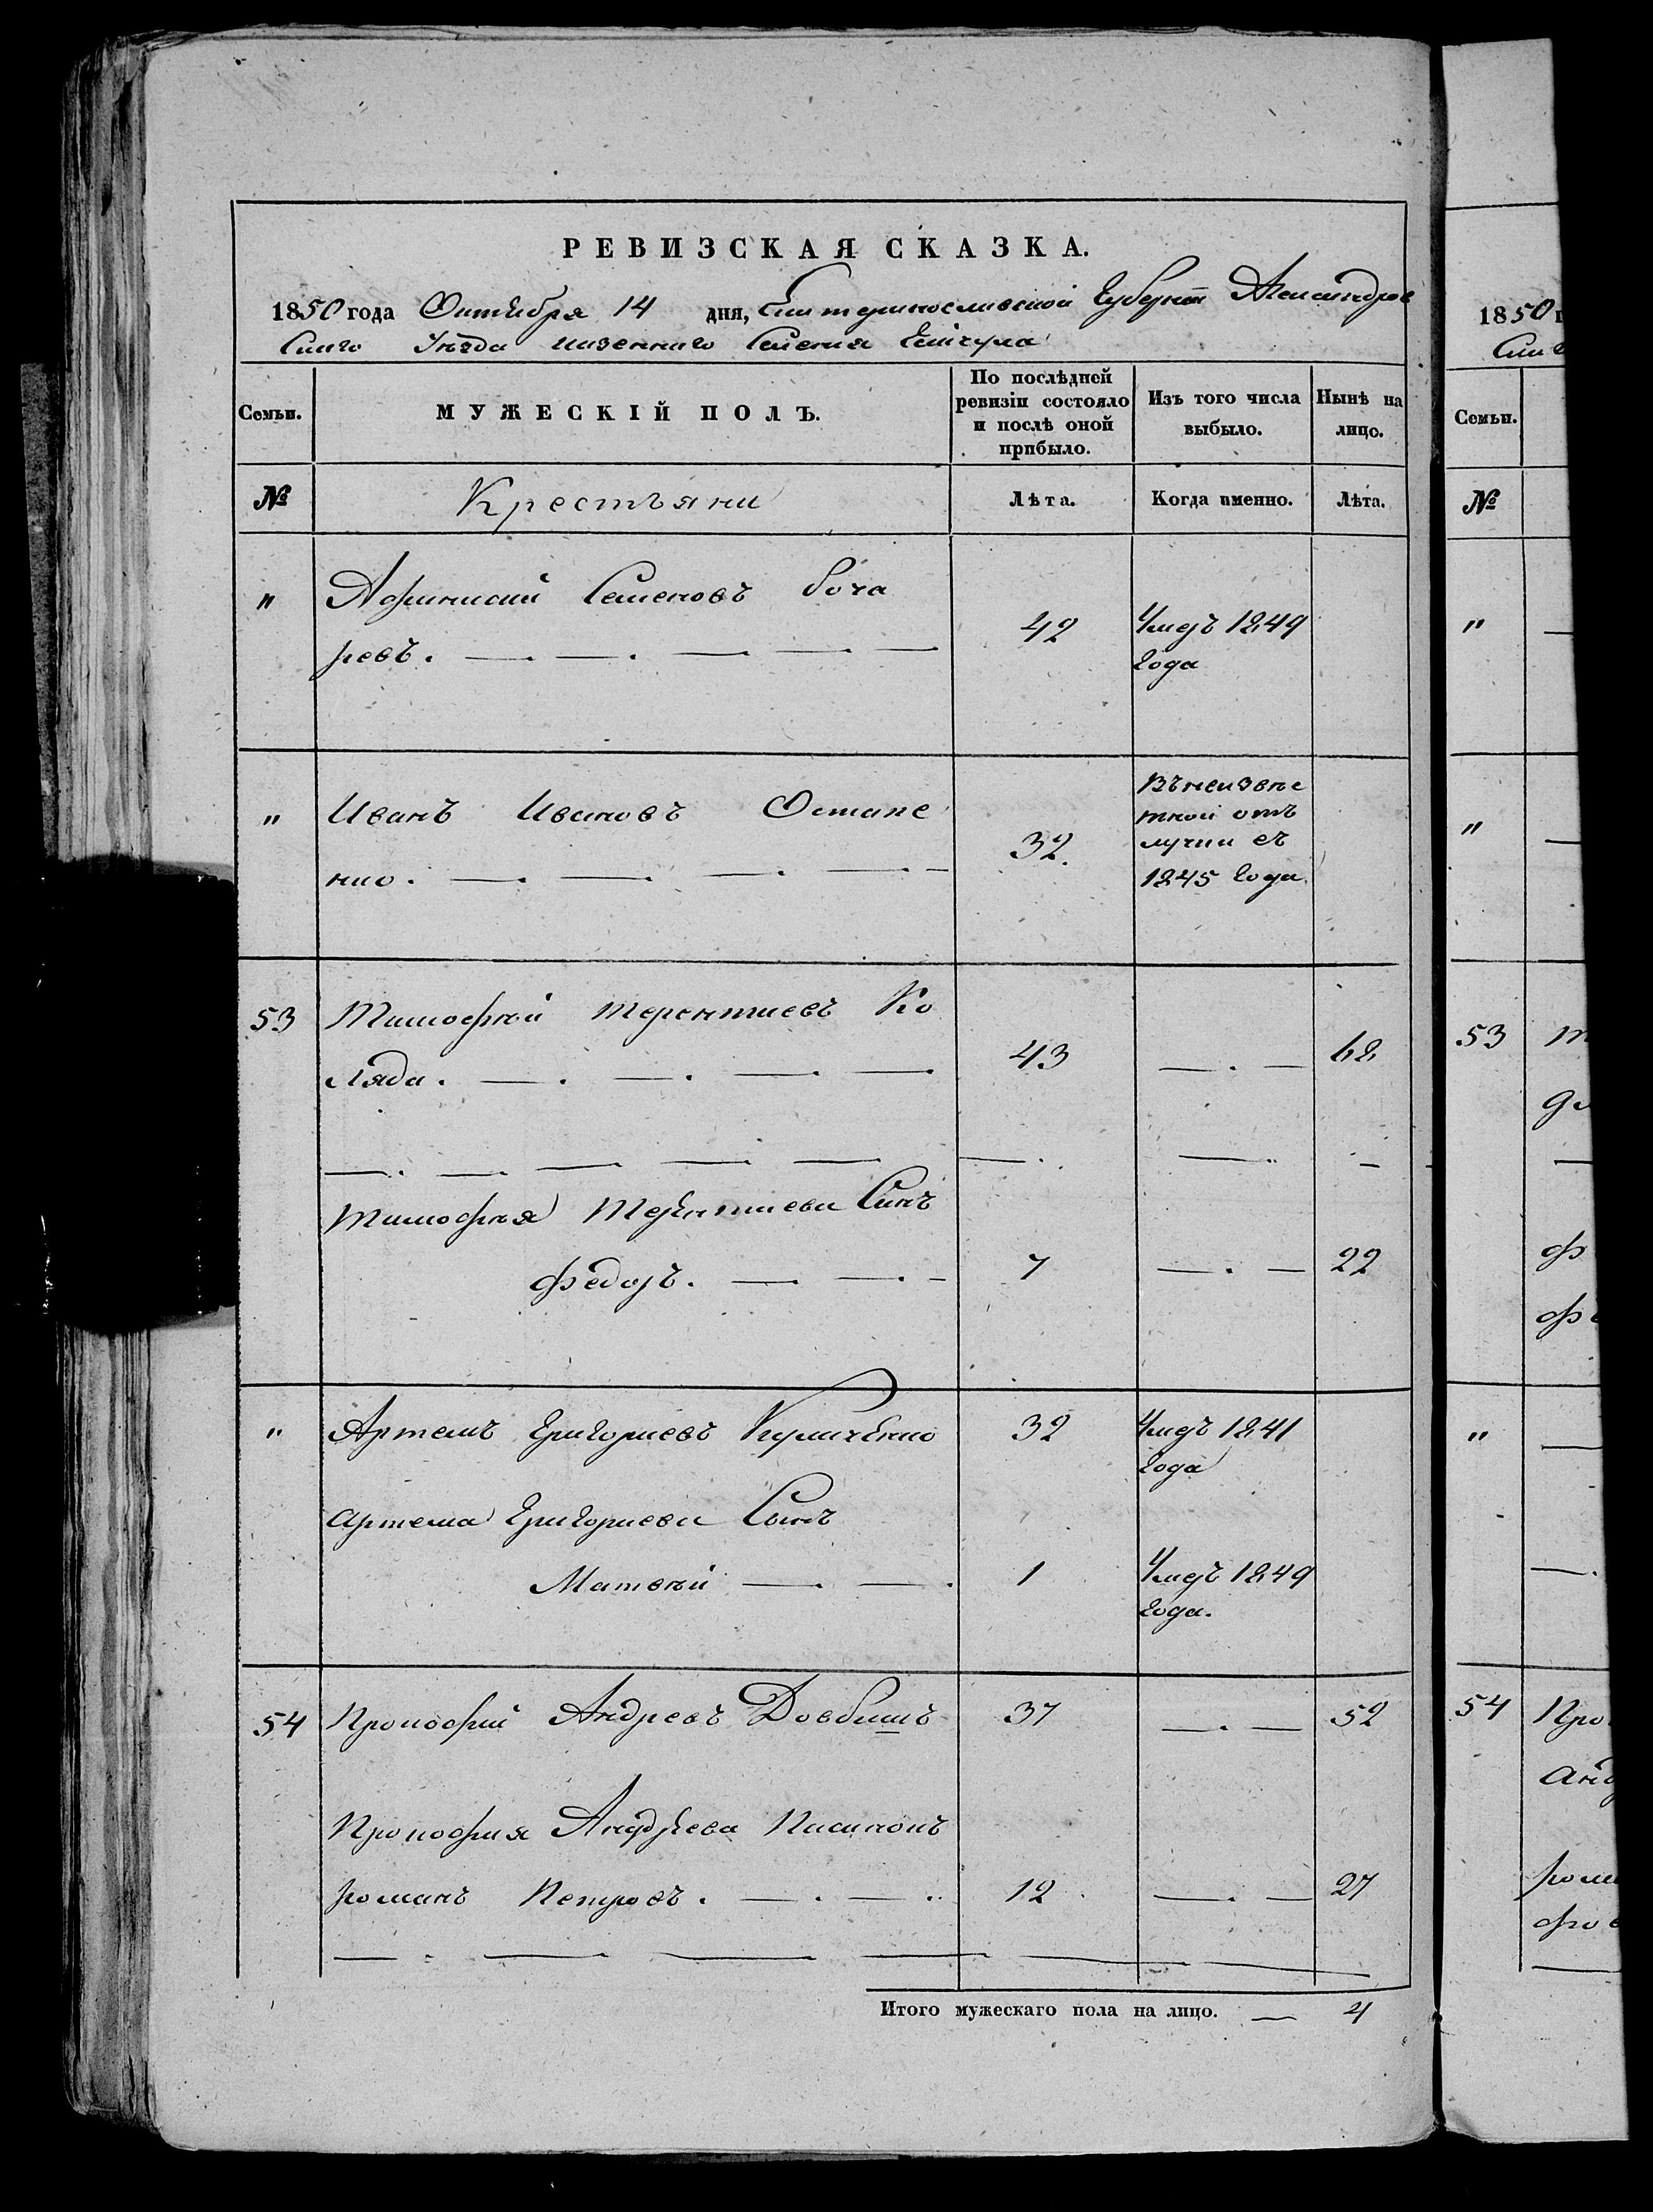 РЕВИЗСКАЯ СКАЗКА.
1850 года Октября 14 дня, Екатеринославской Губерніи Александров
скаго Уѣзда казеннаго Селенія
Семьи.
МУЖЕСКІЙ ПОЛЪ.
По послѣдней ревизіи состояло и послѣ оной прибыло.
Изъ того числа выбыло.
Нынѣ на лицо.
№
Крестьяни
Лѣта.
Когда именно.
Лѣта.
" Афанасий Семеновъ Боча
ревъ. 42 Умеръ 1849
года
" Иванъ Ивановъ Остапе
нко. 32. Въ неизвѣс
тной отъ
лучки съ
1845 года.
53 Тимофѣй Терентиевъ Ко
ляда. 43 — . — 68
Тимофѣя Терентиева Сынъ
Федоръ. 7 — . — 22
" Артемъ Григориевъ 32 Умеръ 1841
года
Артема Григориева Сынъ
Матвѣй 1 Умеръ 1849
года.
54 Прокофий Андреевъ Довбишъ 37 — . — 52
Прокофия Андреева Пасинокъ
Романъ Петровъ. 12 — . — 27
Итого мужескаго пола на лицо. — 4
1850
Семьи.
№
"
"
53
"
54